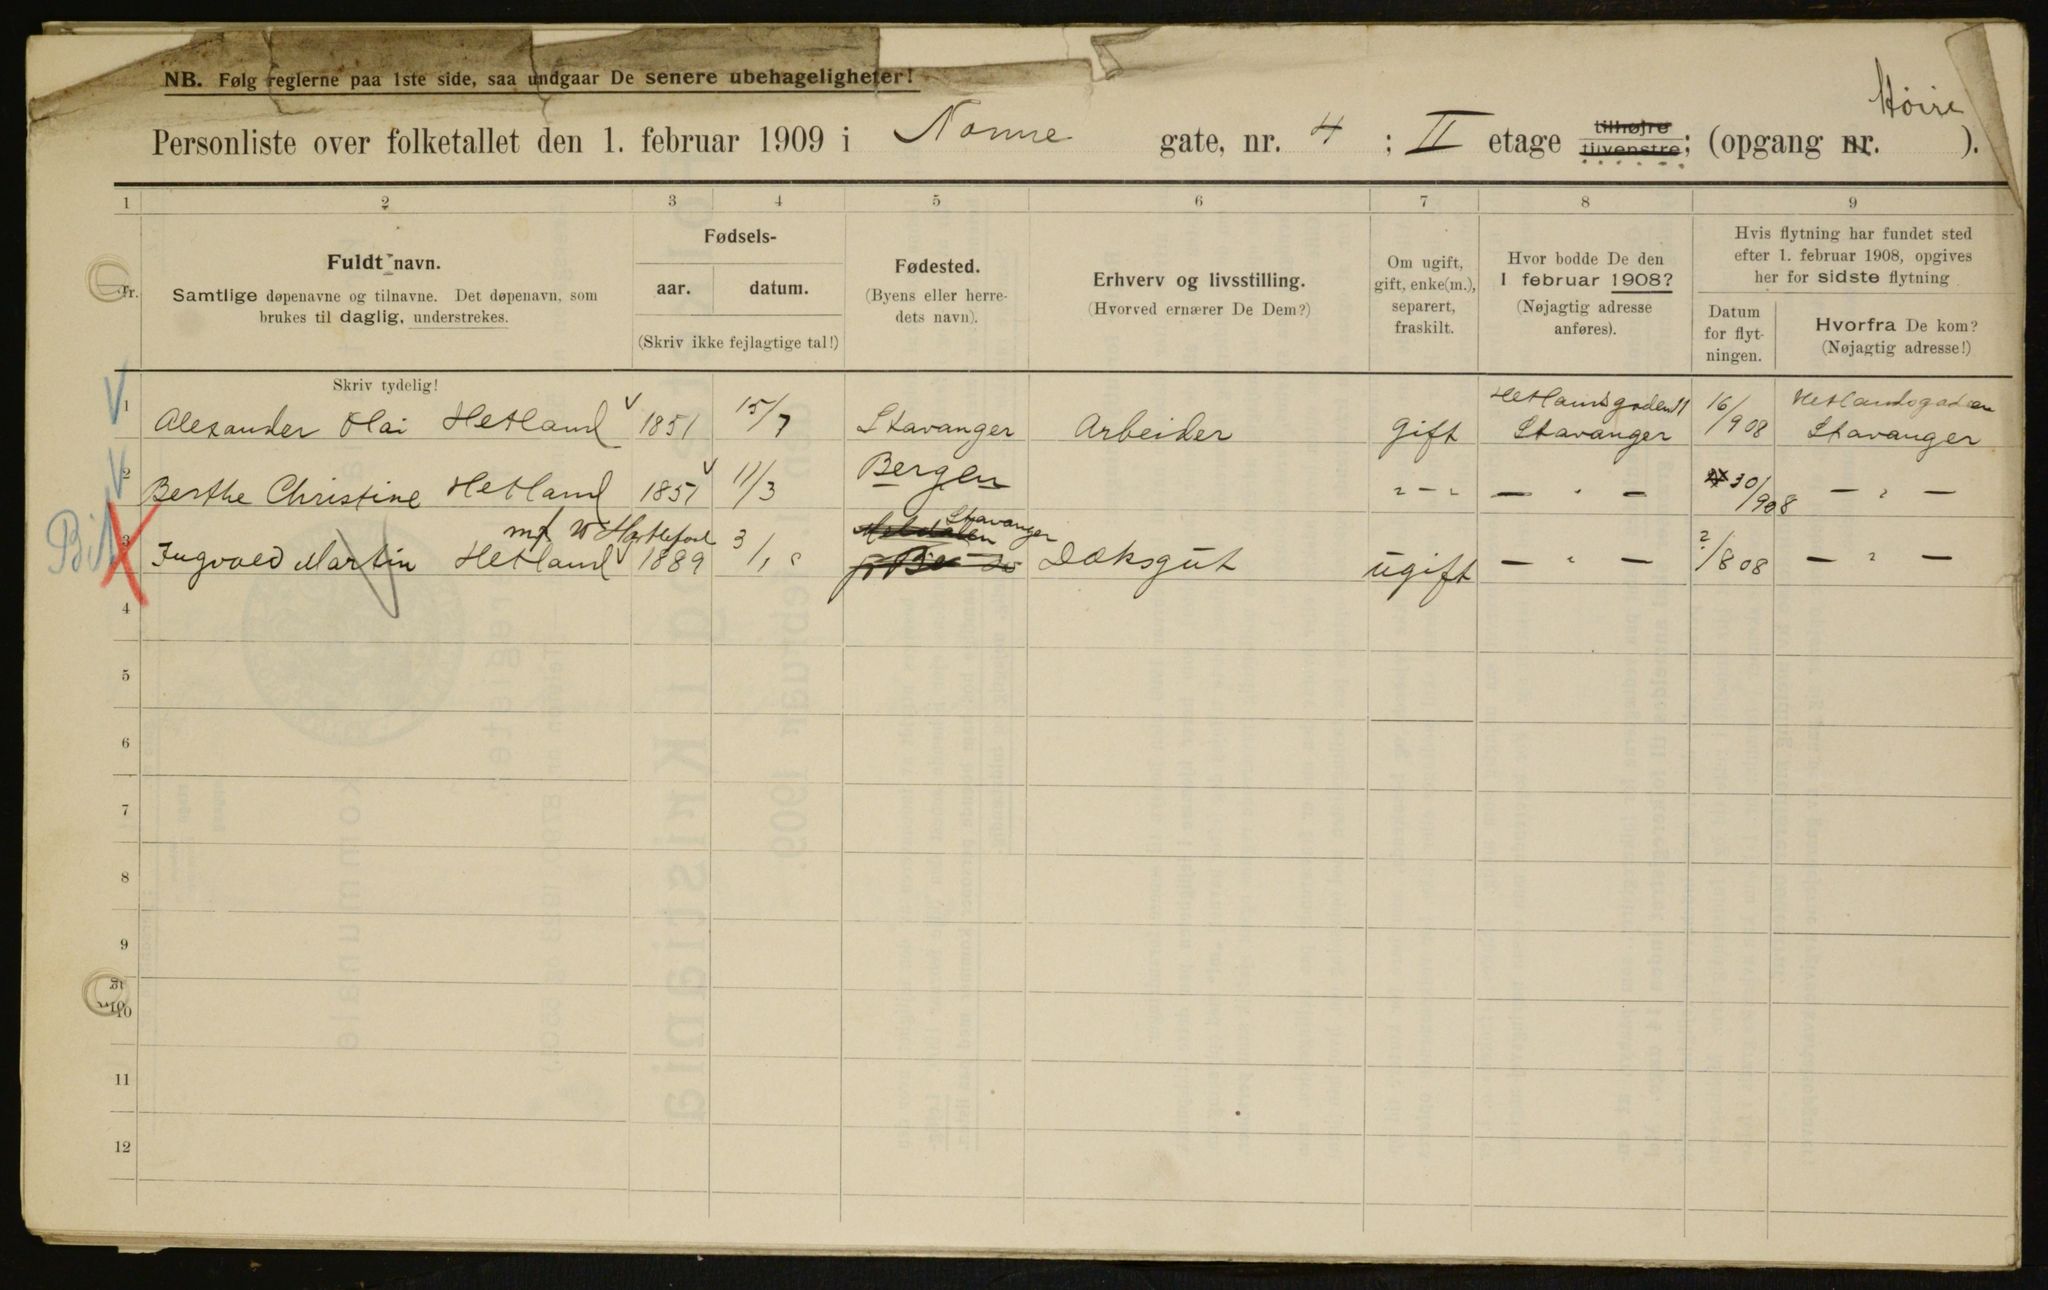 NB. Følg reglerne paa 1ste side, saa undgaar De senere ubehageligheter!
Høire
Personliste over folketallet den 1. februar 1909 i Nonne gate, nr. 4 ; II etage tilhøjre tilvenstre; (opgang nr. ).
1 2 3 4 5 6 7 8 9
Nr.
Fuldt navn.
Samtlige døpenavne og tilnavne. Det døpenavn, som
brukes til daglig, understrekes.
Fødsels-
aar. datum.
(Skriv ikke fejlagtige tal!)
Fødested.
(Byens eller herre-
dets navn).
Erhverv og livsstilling.
(Hvorved ernærer De Dem?)
Om ugift,
gift, enke(m.),
separert,
fraskilt.
Hvor bodde De den
1 februar 1908?
(Nøjagtig adresse
anføres).
Hvis flytning har fundet sted
efter 1. februar 1908, opgives
her for sidste flytning
Datum
for flyt-
ningen.
Hvorfra De kom?
(Nøjagtig adresse!)
Skriv tydelig!
1 Alexander Olai Hetland 1851 15/7 Stavanger Arbeider Gift Hetlandsgaden 11 Stavanger 16/908 Hetlandsgaden Stavanger
2 Berthe Christine Hetland 1851 11/3 Bergen " - " — " — 30/908 — " —
3 Ingvald Martin Hetland 1889 3/1 Stavanger Dæksgut ugift — " — ?/808 — " —
4
5
6
7
8
9
10
11
12